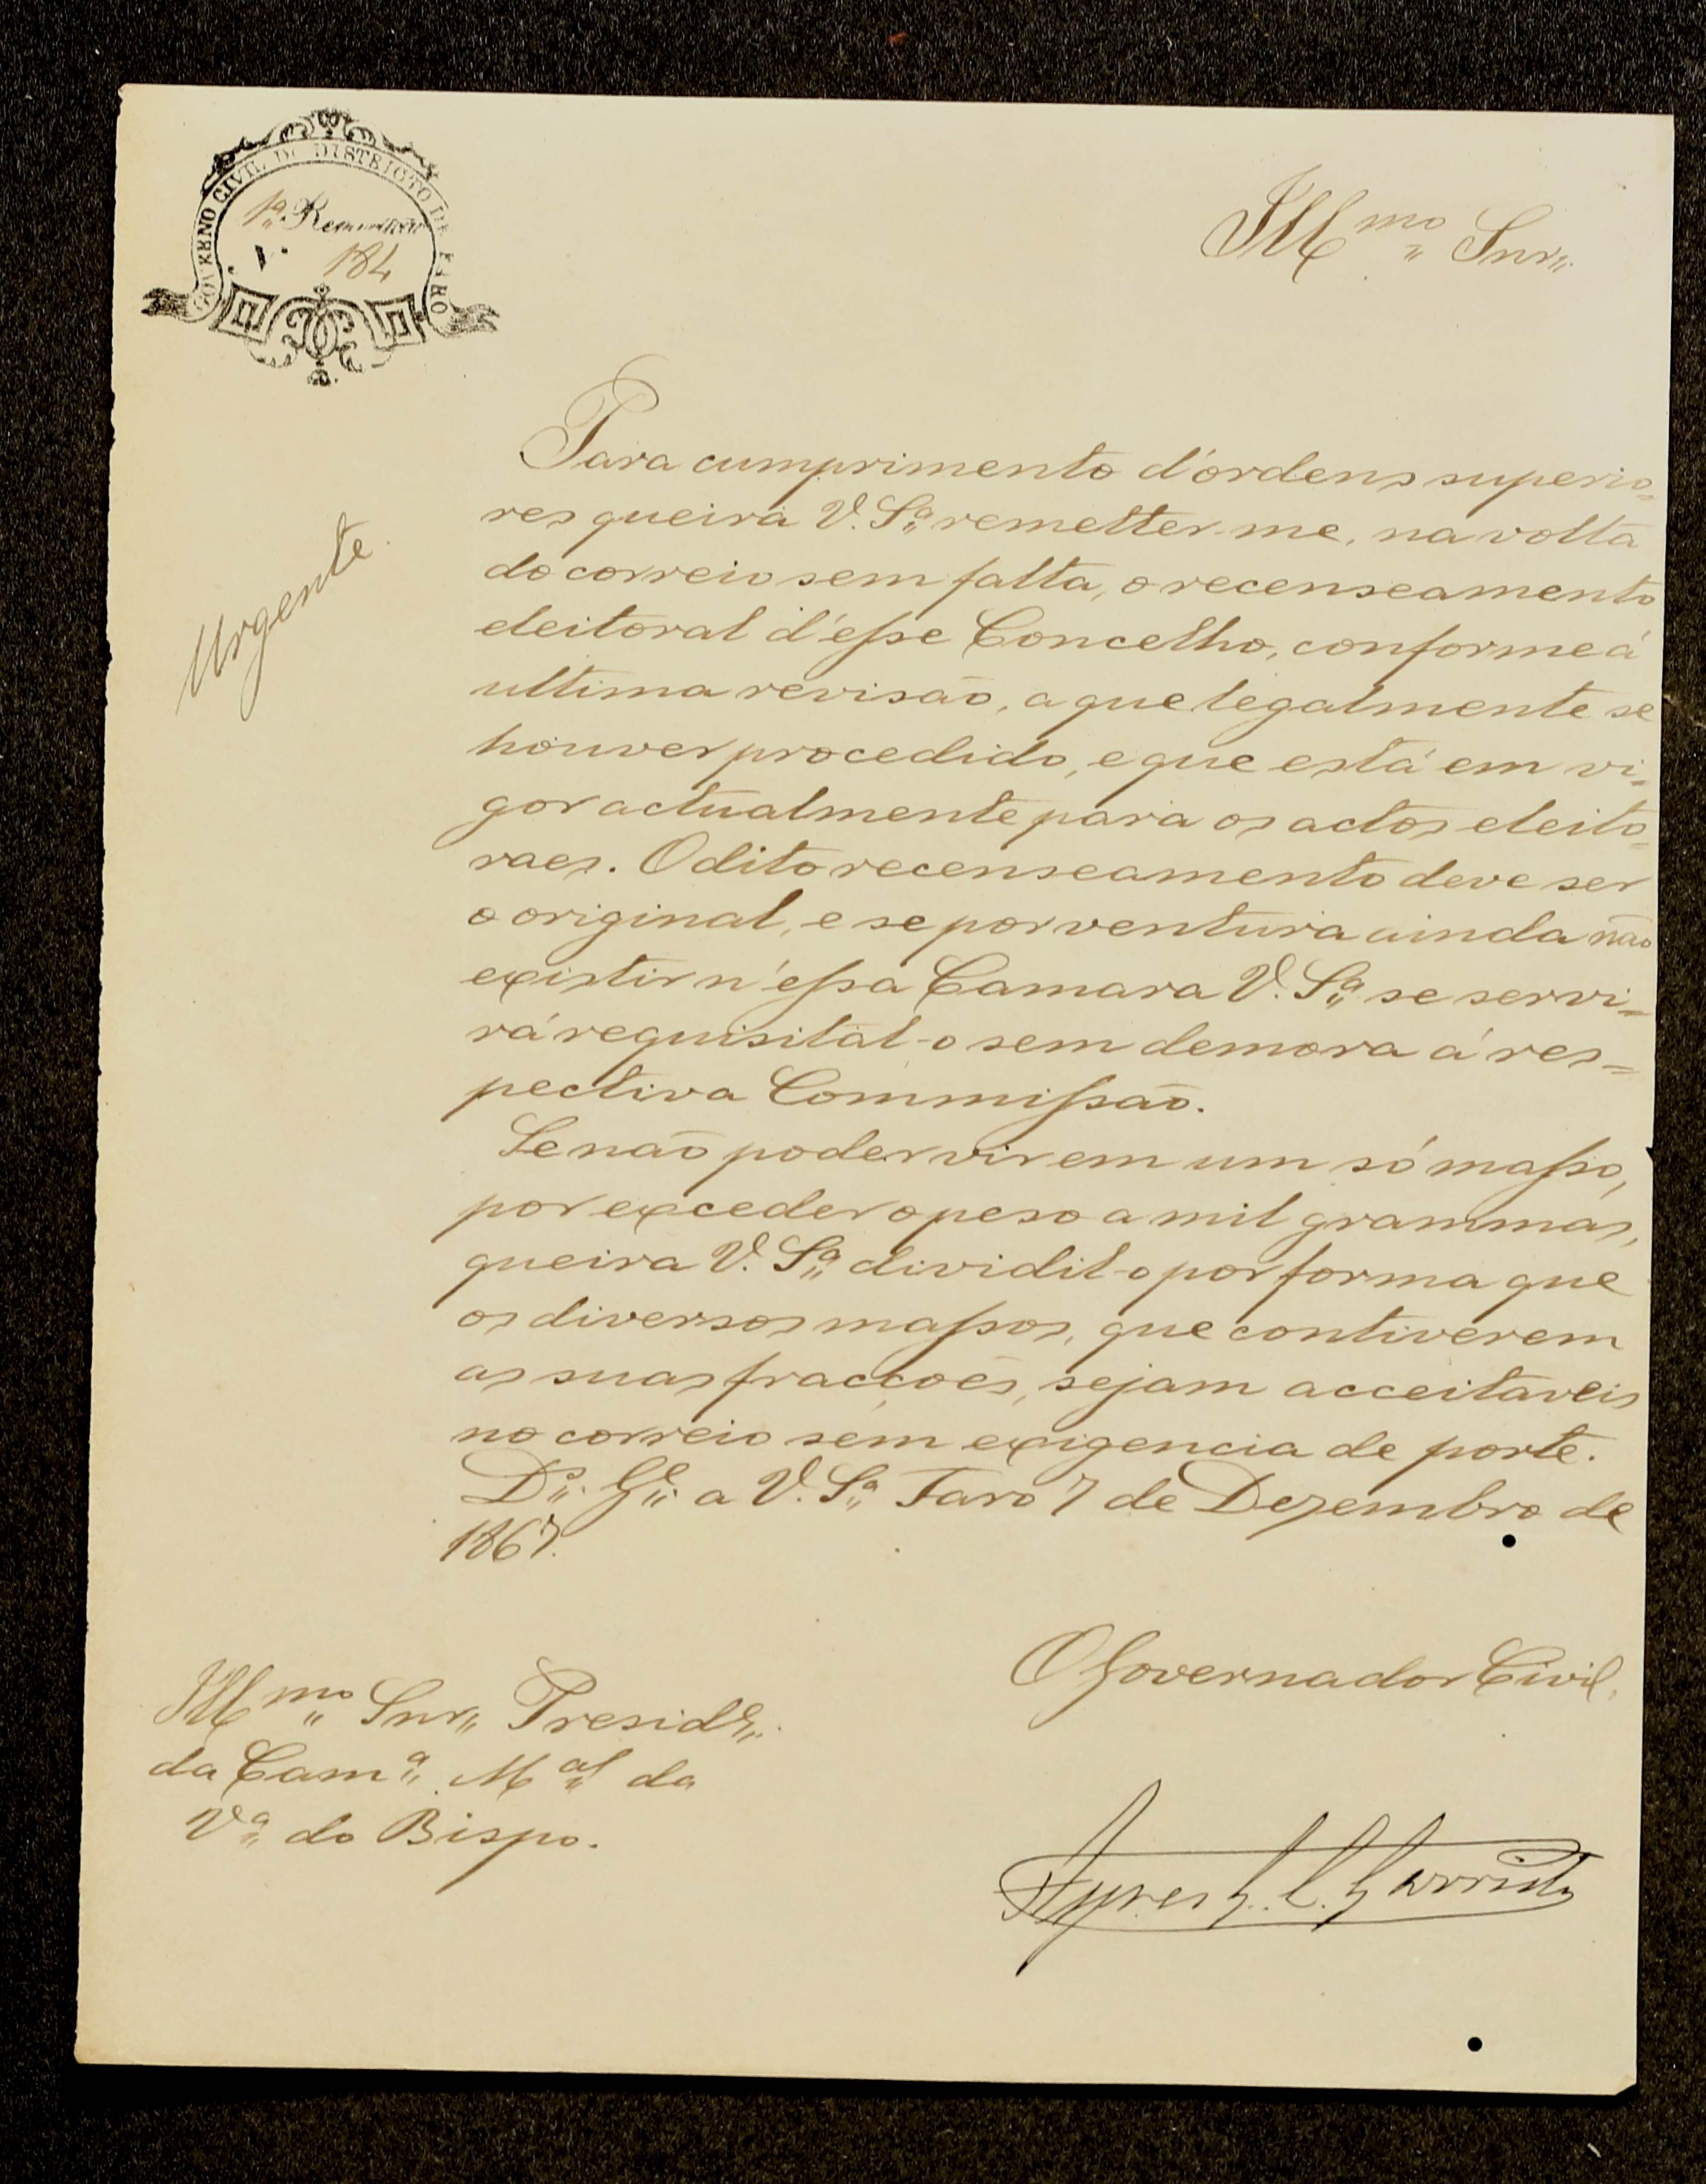 GOVERNO CIVIL DO DISTRICTO DE FARO
1ª Repartição
N.º 184
Illmo Snr.
Urgente.
Para cumprimento d'ordens superio=
res queira V. Sª remetter-me, na volta
do correio sem falta, o recenseamento
eleitoral d'esse Concelho, conforme á
ultima revisão, a que legalmente se
houver procedido, e que está em vi=
gor actualmente para os actos eleito=
raes. O dito recenseamento deve ser
o original, e se porventura ainda não
existir n'essa Camara V. Sª se servi=
rá requisital-o sem demora á res=
pectiva Commissão.
Se não poder vir em um só masso,
por exceder o peso a mil grammas,
queira V. Sª dividil-o por forma que
os diversos massos, que contiverem
as suas fracções, sejam acceitaveis
no correio sem exigencia de porte.
Ds. Ge. a V. Sª Faro 7 de Dezembro de
1867.
O Governador Civil,
Illmo Snr. Preside.
da Camª Mal da
Vª do Bispo.